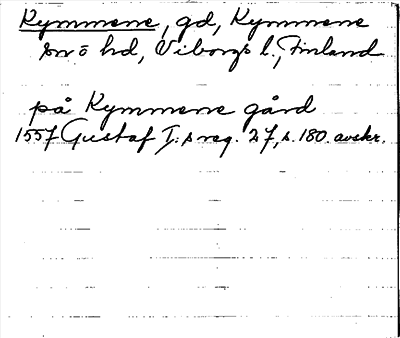 Kymmene, gd, Kymmene
sn o hd, Viborgs l., Finland
på Kymmene gård
1557 Gustaf I:s reg. 27, s. 180. avskr.